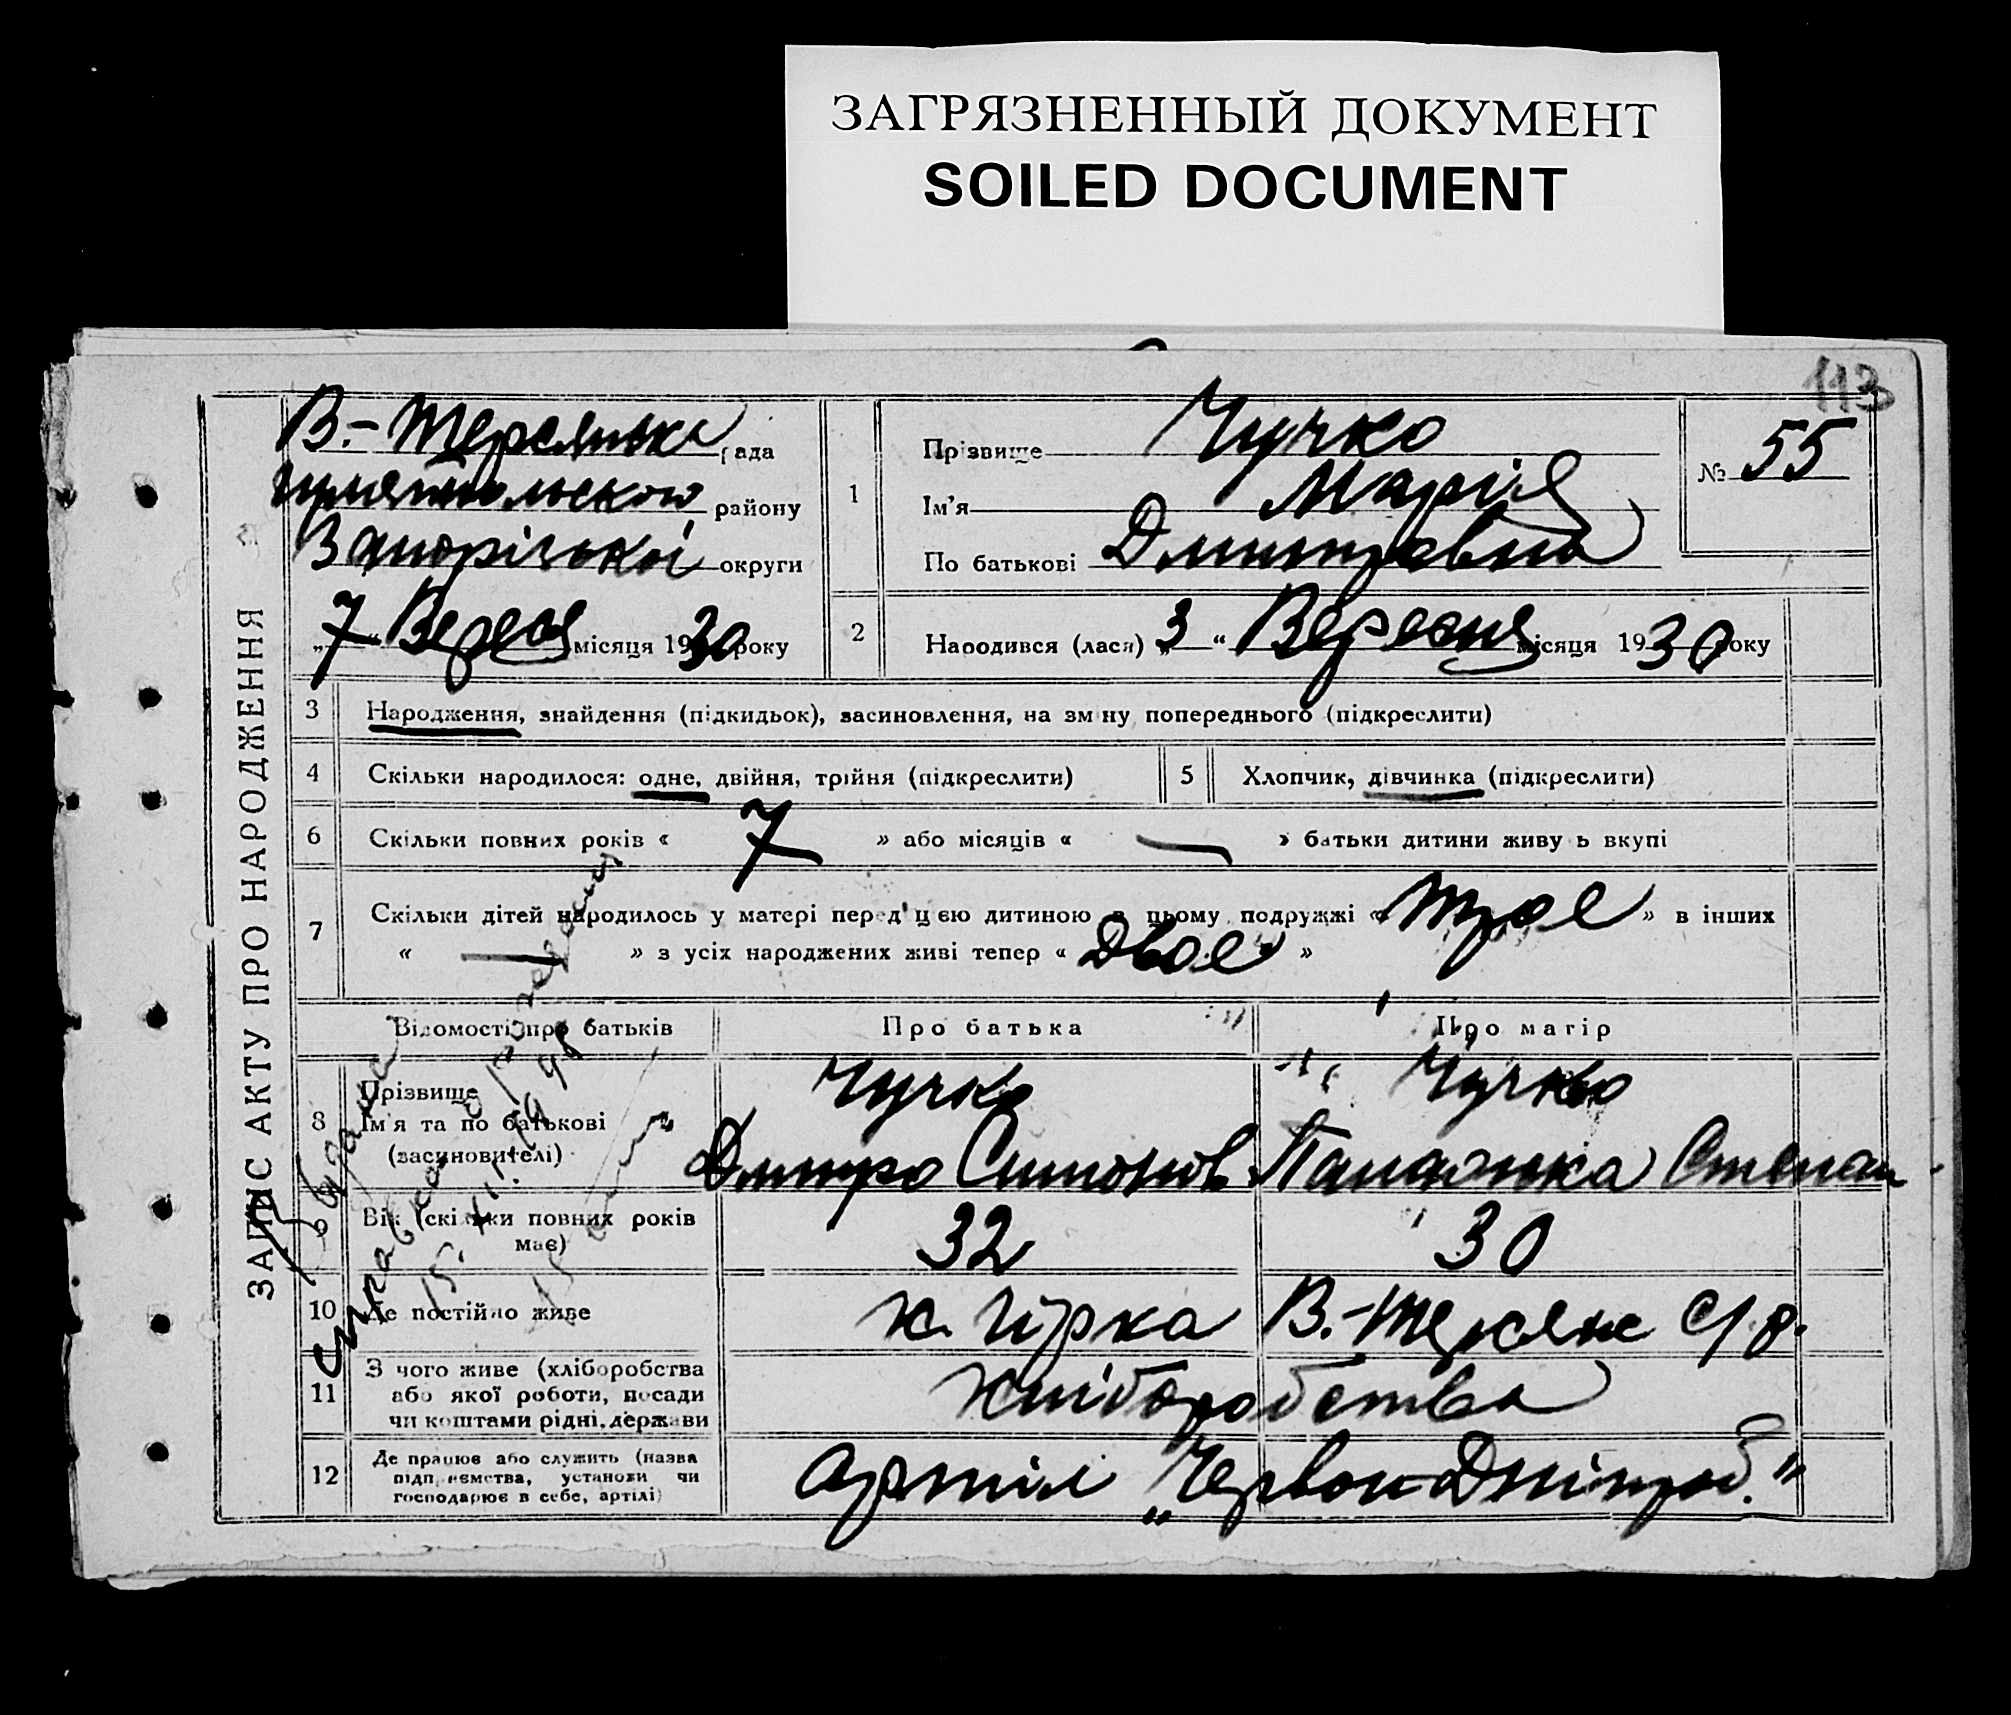 ЗАГРЯЗНЕННЫЙ ДОКУМЕНТ
SOILED DOCUMENT
113
ЗАПИС АКТУ ПРО НАРОДЖЕННЯ
В.-Терсянська рада
району
Запорізької округи
„ 7 “ Вересня місяця 1930 року
1
Прізвище Чучко
Ім'я Марія
По батькові Дмитровна
№ 55
2
Народився (лася) „ 3 “ Вересня місяця 1930 року
3 Народження, знайдення (підкидьок), засиновлення, на зміну попереднього (підкреслити)
4 Скільки народилося: одне, двійня, трійня (підкреслити)
5 Хлопчик, дівчинка (підкреслити)
6 Скільки повних років « 7 » або місяців « — » батьки дитини живуть вкупі
7 Скільки дітей народилось у матері перед цією дитиною в цьому подружжі « троє » в інших
« — » з усіх народжених живі тепер « Двоє »
Відомості про батьків
Про батька
Про матір
8 Прізвище
Ім'я та по батькові
(засиновителі)
Чучко
Дмитро Симонов
Чучко
Степан
9 Вік (скільки повних років
має)
32
30
10 Де постійно живе
х. Гірка В.-Терсянс с/р.
11 З чого живе (хліборобства
або якої роботи, посади
чи коштами рідні, держави
Хліборобства
12 Де працює або служить (назва
підприємства, установи чи
господарює в себе, артілі)
Артіл „Червон Дніпроб."
Видана
справка о рождении
15.XII. 1948